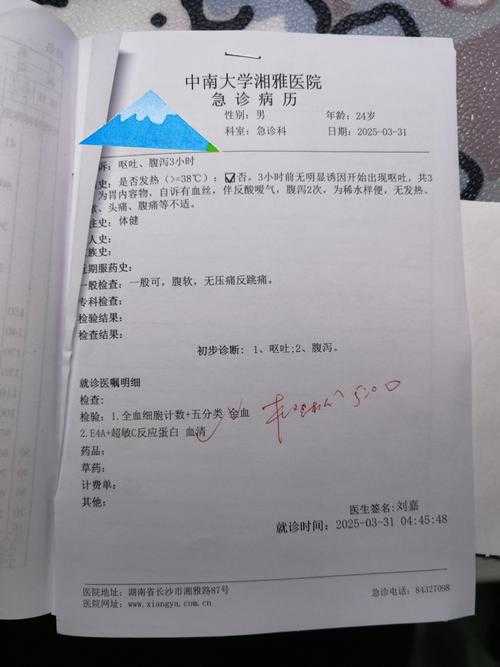 中南大学湘雅医院
急诊病历
性别：男 年龄：24岁
科室：急诊科 日期：2025-03-31
诉：呕吐、腹泻3小时
史：是否发热（>=38℃）：☑否。3小时前无明显诱因开始出现呕吐，共3
为胃内容物，自诉有血丝，伴反酸嗳气，腹泻2次，为稀水样便，无发热、
头痛、腹痛等不适。
史：体健
人史：
族史：
近期服药史：
一般检查：一般可，腹软，无压痛反跳痛。
专科检查：
检验结果：
检查结果：
初步诊断： 1、呕吐;2、腹泻。
就诊医嘱明细
检查：
检验：1.全血细胞计数+五分类 全血
2.E4A+超敏C反应蛋白 血清
药品：
草药：
计费单：
其他：
医生签名:刘嘉
就诊时间：2025-03-31 04:45:48
医院地址：湖南省长沙市湘雅路87号 急诊电话：84327098
医院网址：www.xiangya.com.cn